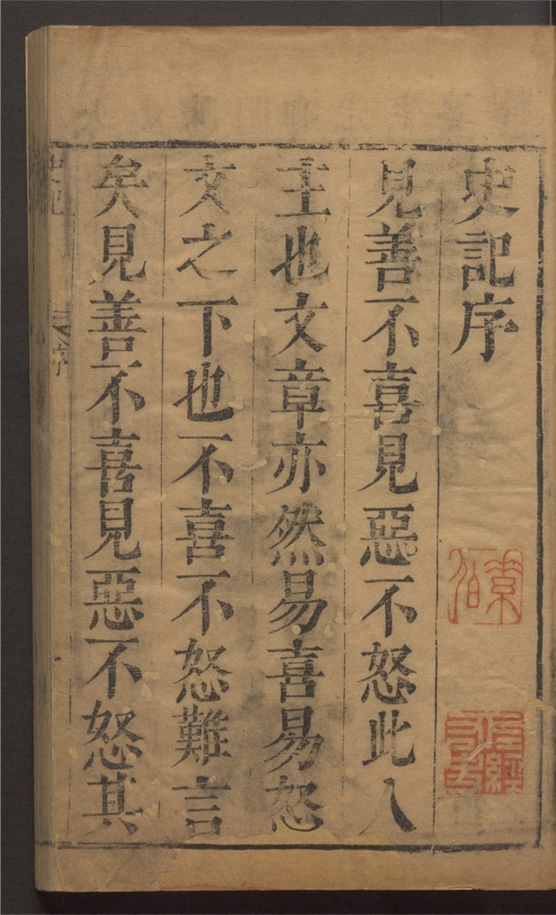 史記序
見善不喜見惡不怒此人
主也文章亦然易喜易怒
文之下也不喜不怒難言
矣見善不喜見惡不怒其